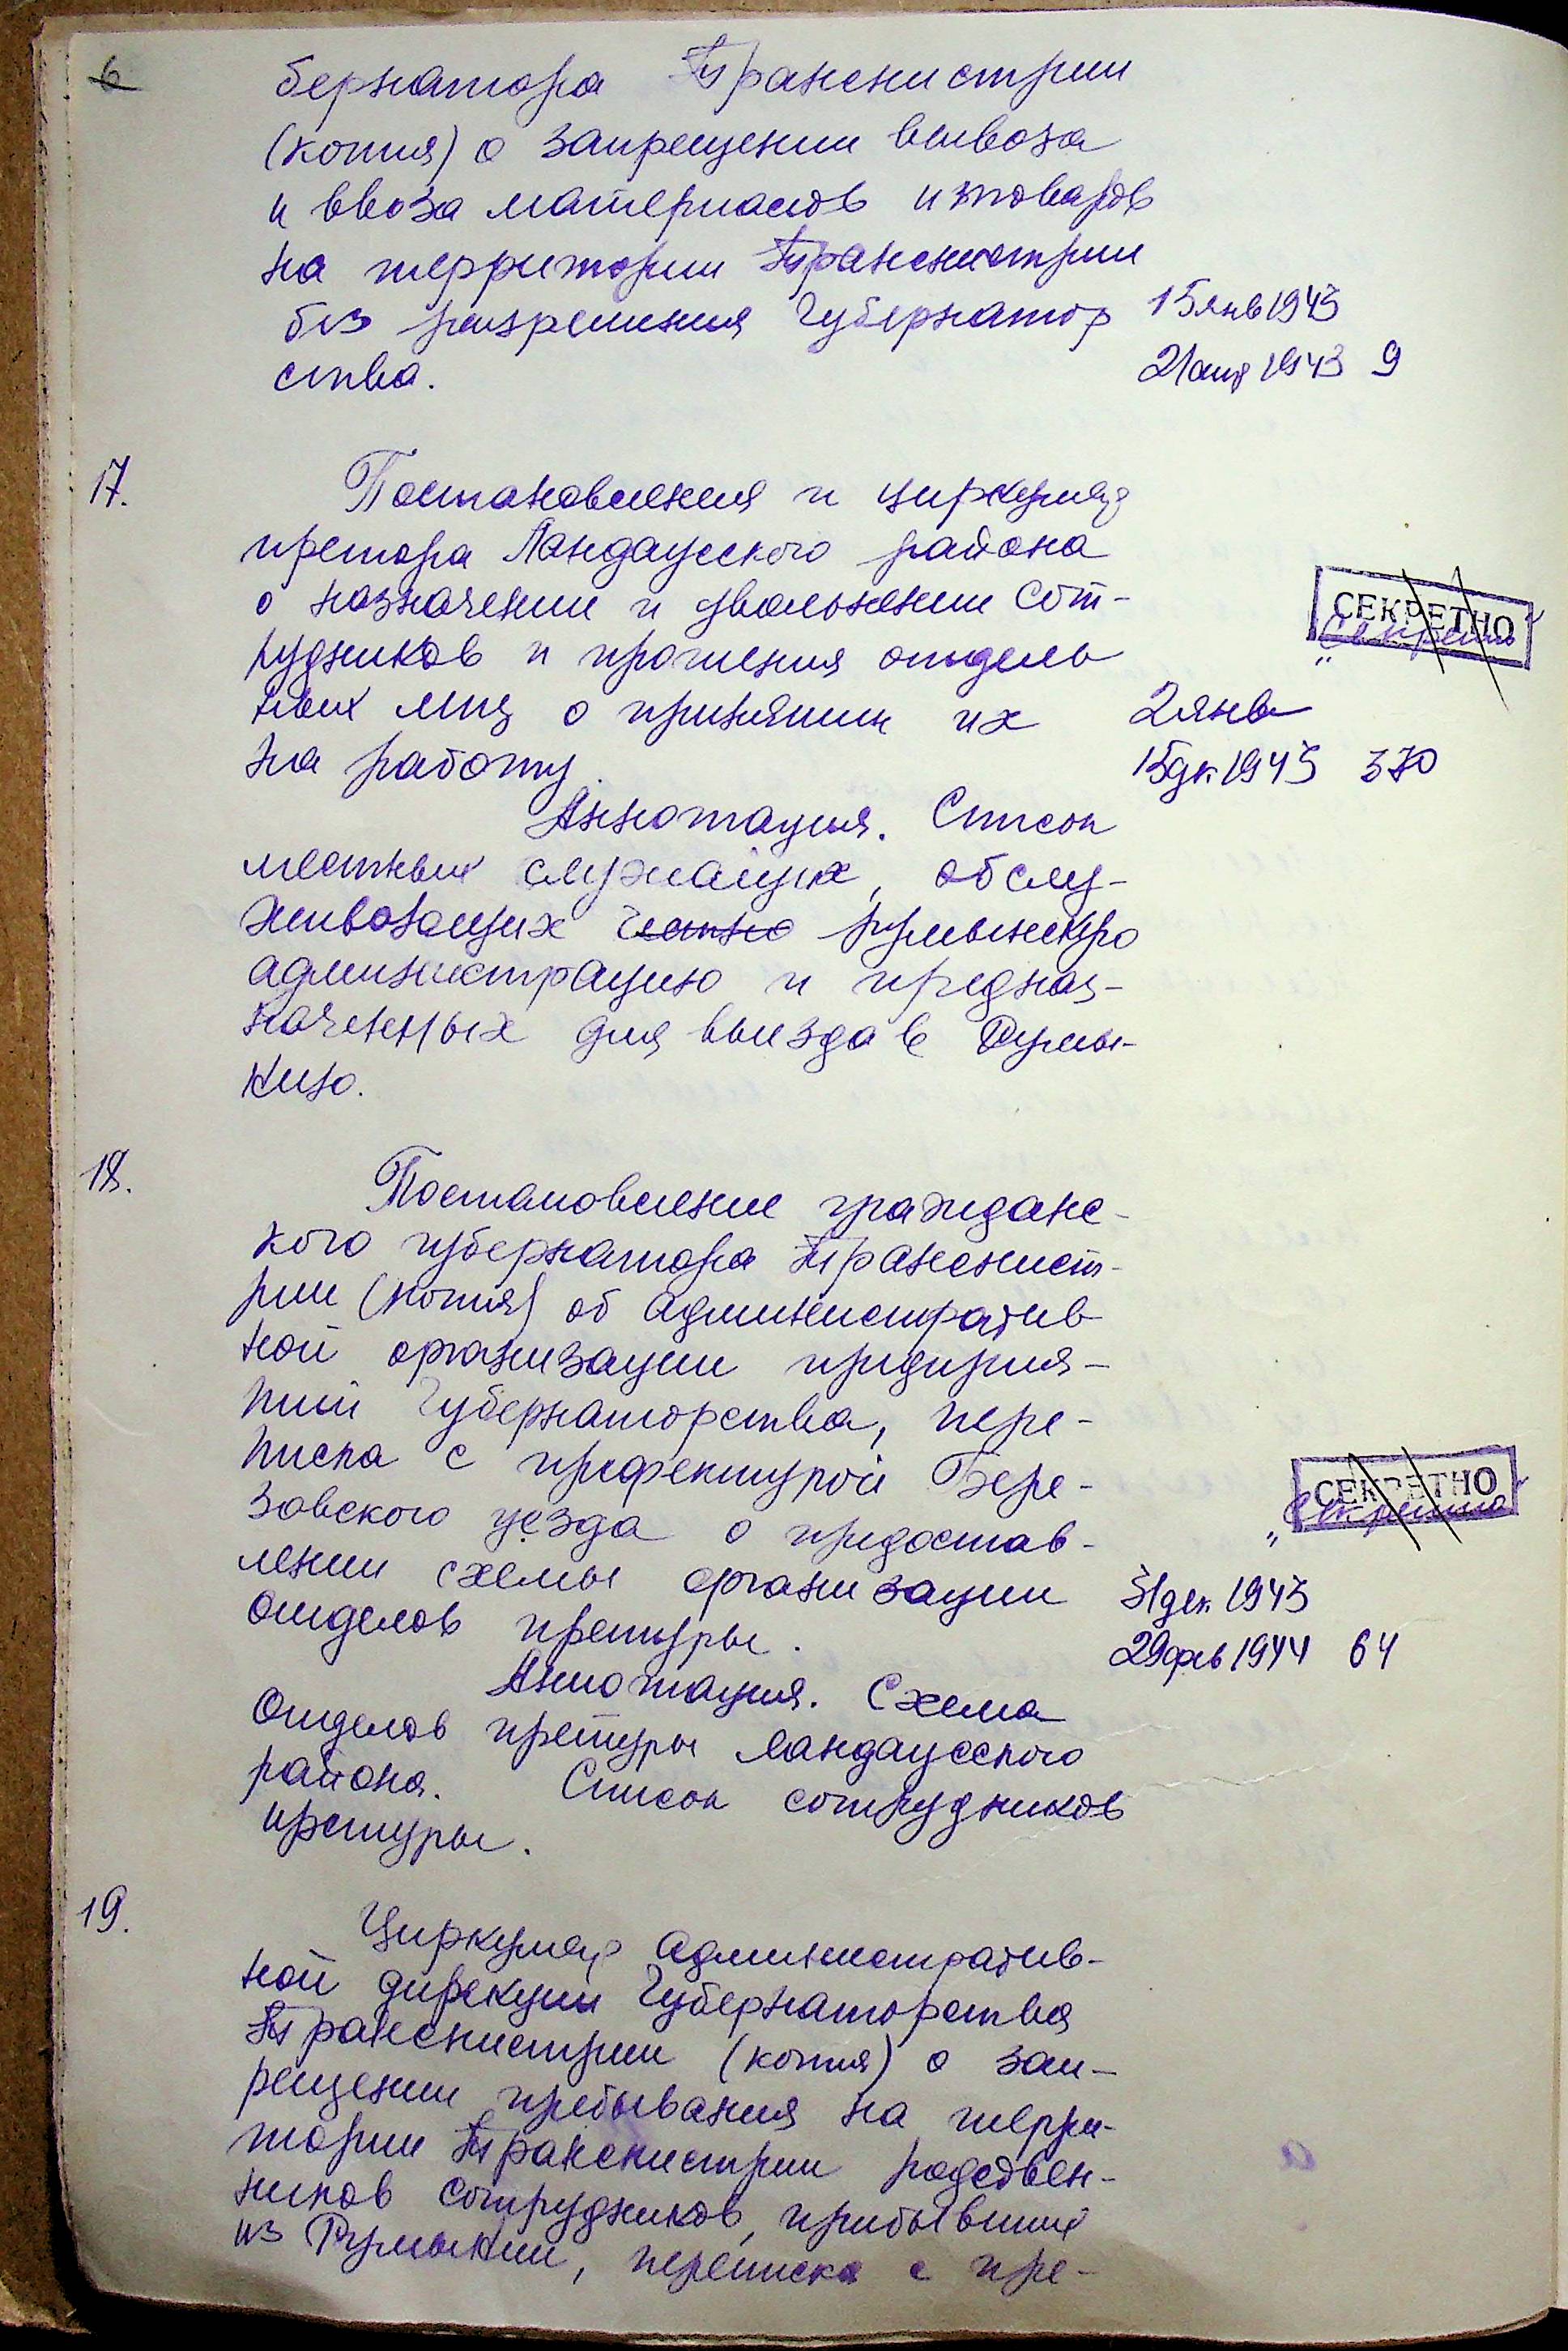 6
бернатора Транснистрии
(копия) о запрещении вывоза
и ввоза материалов и товаров
на территории Транснистрии
без разрешения Губернатор 15 янв 1943
ства. 21 апр 1943 9
17. Постановления и циркуляр
претора Ландауского района
о назначении и увольнении сот-
рудников и прошения отдель
ных лиц о принятии их 2 янв
на работу. 15 дк 1943 370
СЕКРЕТНО
„Секретно
Аннотация. Список
местных служащих, обслу-
живающих румынскую
администрацию и предназ-
наченных для выезда в Румы-
нию.
18. Постановление гражданс-
кого губернатора Транснист-
рии (копия) об административ-
ной организации предприя-
тий Губернаторства, пере-
писка с префектурой Бере-
зовского уезда о предостав-
СЕКРЕТНО
„Секретно
лении схемы организации 31 дек 1943
отделов претуры. 29 фев 1944 64
Аннотация. Схема
Отделов претуры Ландауесского
района. Список сотрудников
претуры.
19. Циркуляр административ-
ной дирекции Губернаторства
Транснистрии (копия) о зап-
рещении пребывания на терри-
тории Транснистрии родствен-
ников сотрудников, прибывших
из Румынии, переписка с пре-